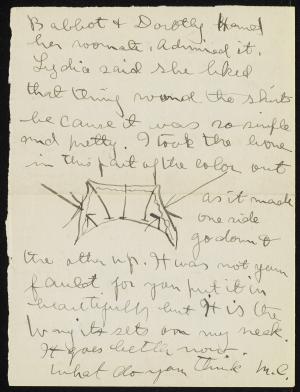 Babbot & Dorothy
her roomate, admired it.
Lydia said she liked
that thing round the skirt
because it was so simple
and pretty. I took the bone
in this part of the color out
as it made
one side
go down &
the other up. It was not your
fault for you put it in
beautifully but it is the
way it sets on my neck.
It goes better now.
What do you think M.C.